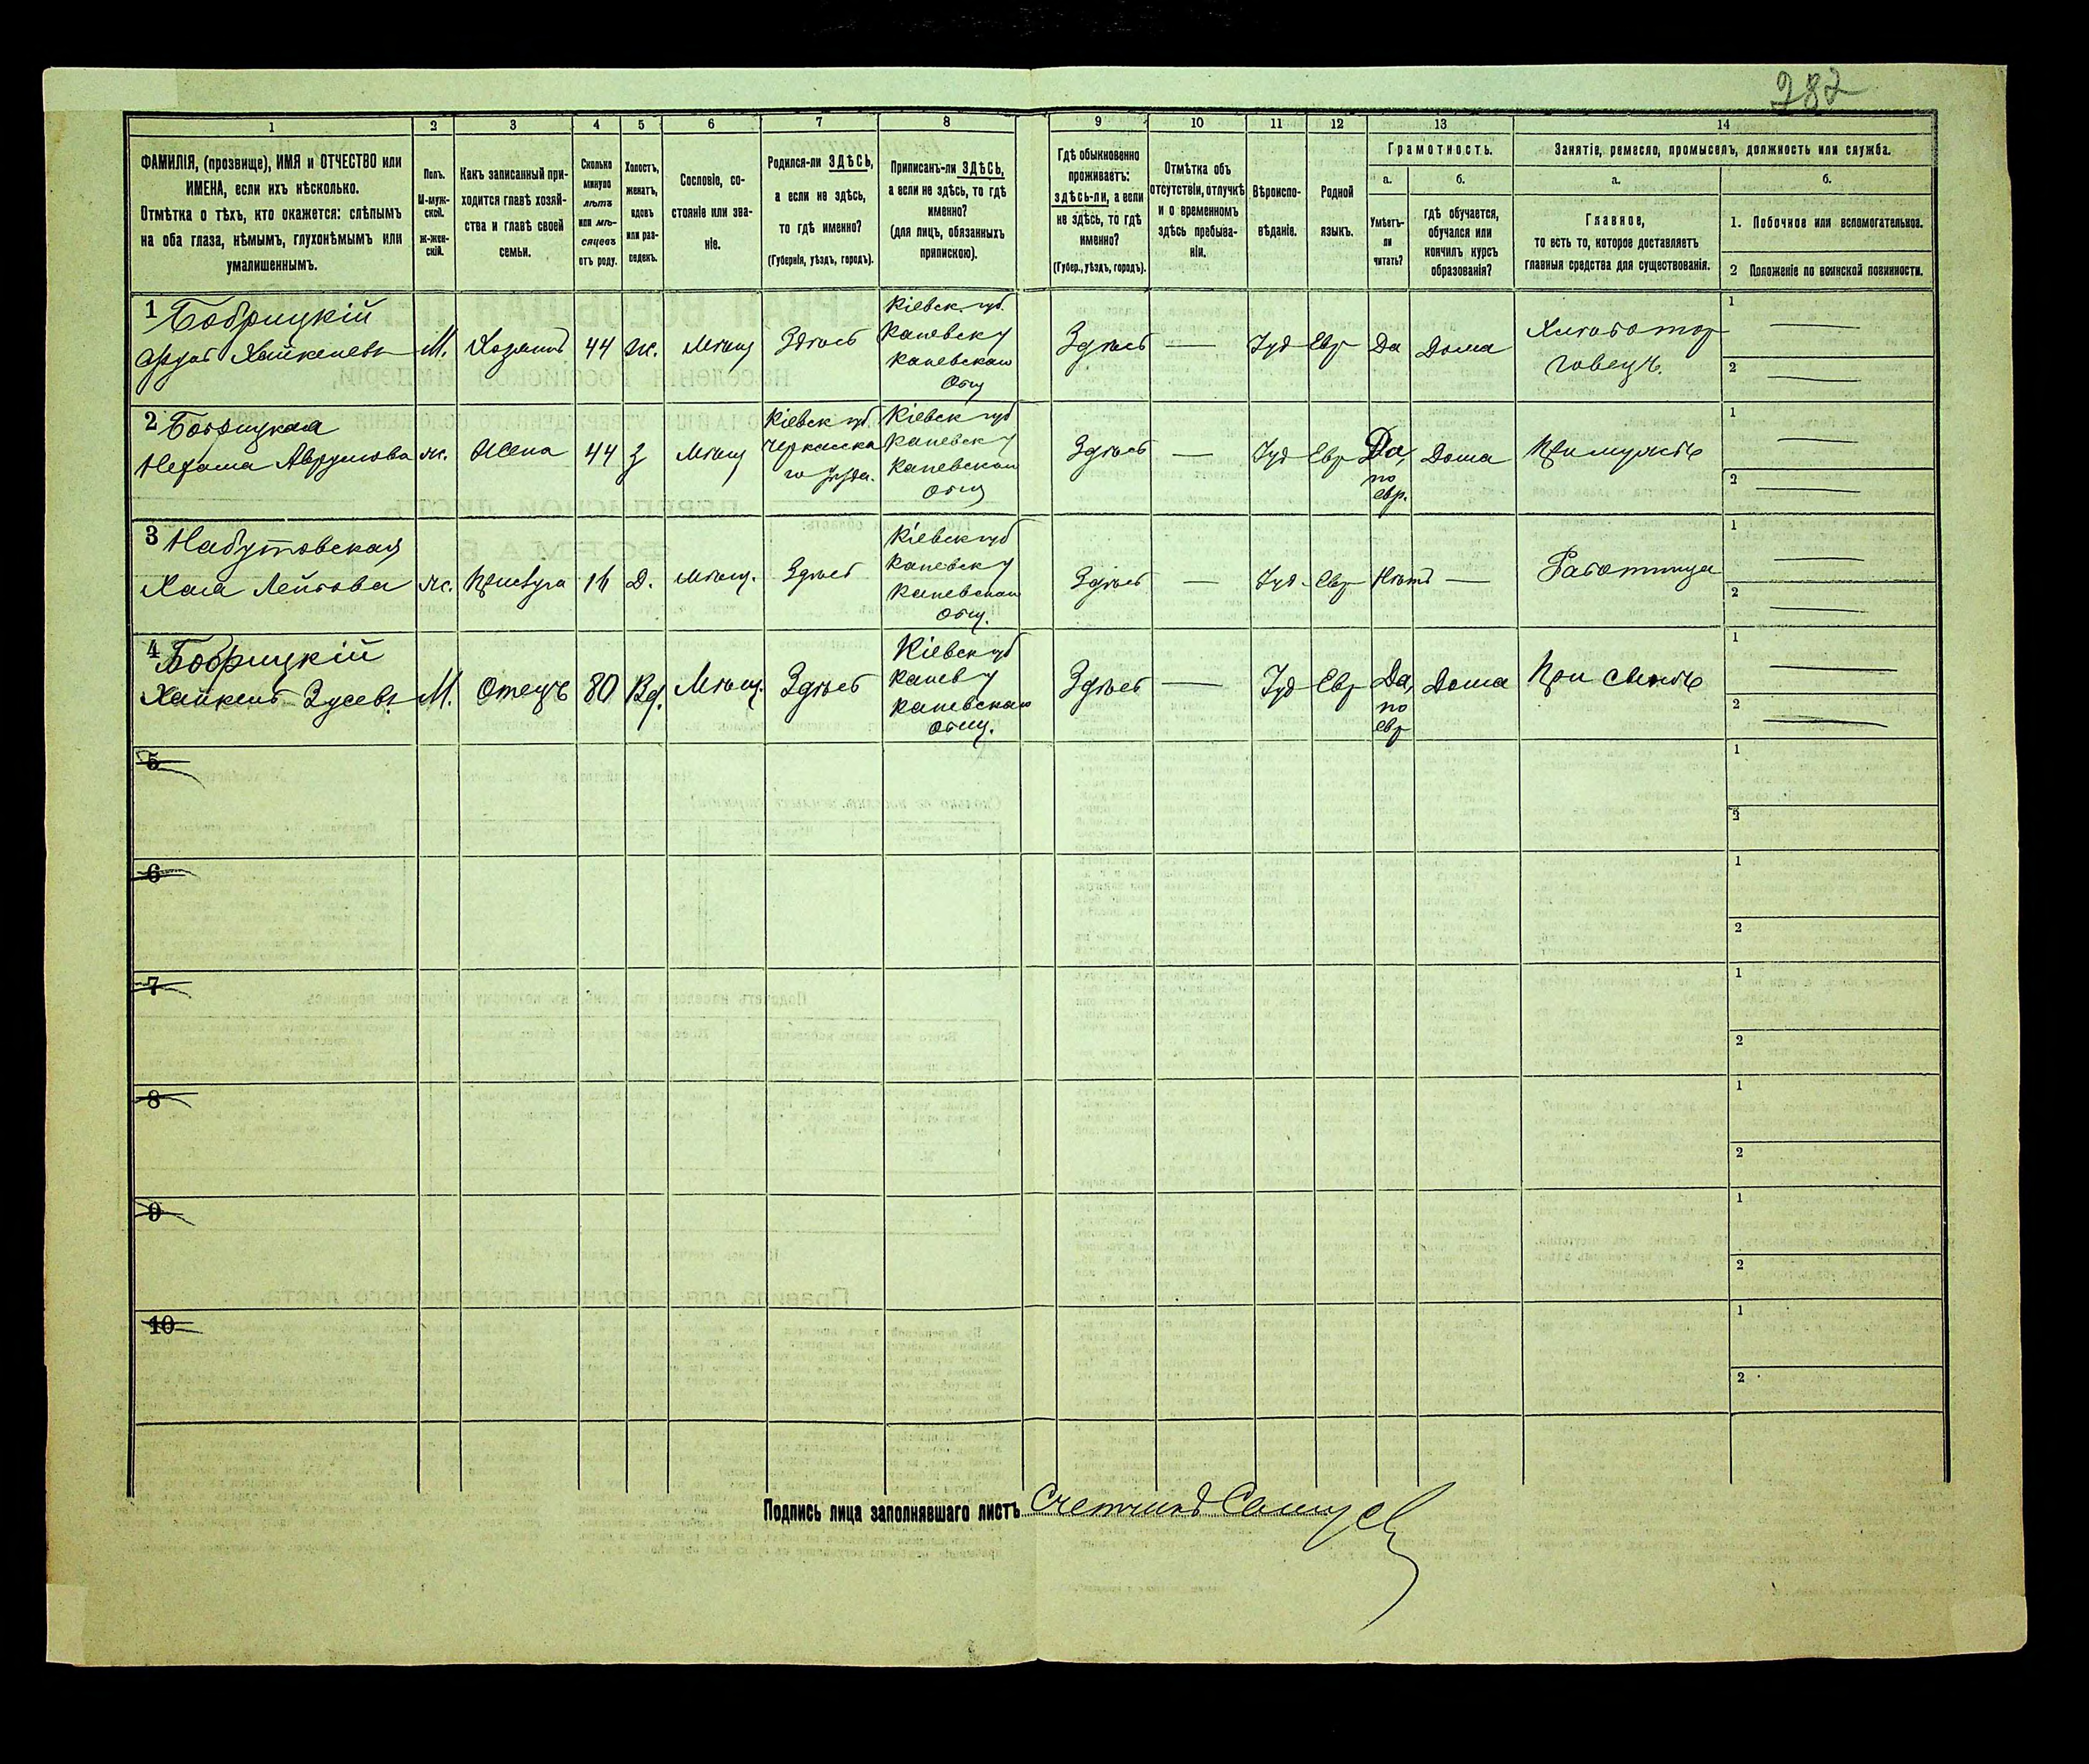 282
1 2 3 4 5 6 7 8 9 10 11 12 13 14
ФАМИЛІЯ, (прозвище), ИМЯ и ОТЧЕСТВО или
ИМЕНА, если ихъ нѣсколько.
Отмѣтка о тѣхъ, кто окажется: слѣпымъ
на оба глаза, нѣмымъ, глухонѣмымъ или
умалишеннымъ.
Полъ.
М-муж-
ской.
Ж-жен-
скій.
Какъ записанный при-
ходится главѣ хозяй-
ства и главѣ своей
семьи.
Сколько
минуло
лѣтъ
или мѣ-
сяцевъ
отъ роду.
Холостъ,
женатъ,
вдовъ
или раз-
веденъ.
Сословіе, со-
стояніе или зва-
ніе.
Родился-ли ЗДѢСЬ,
а если не здѣсь,
то гдѣ именно?
(Губернія, уѣздъ, городъ).
Приписанъ-ли ЗДѢСЬ,
а если не здѣсь, то гдѣ
именно?
(для лицъ, обязанныхъ
припискою).
Гдѣ обыкновенно
проживаетъ:
здѣсь-ли, а если
не здѣсь, то гдѣ
именно?
(Губер., уѣздъ, городъ).
Отмѣтка объ
отсутствіи, отлучкѣ
и о временномъ
здѣсь пребыва-
ніи.
Вѣроиспо-
вѣданіе.
Родной
языкъ.
Грамотность.
а.
Умѣетъ-
ли
читать?
б.
гдѣ обучается,
обучался или
кончилъ курсъ
образованія?
Занятіе, ремесло, промыселъ, должность или служба.
а.
Главное,
то есть то, которое доставляетъ
главныя средства для существованія.
б.
1. Побочное или вспомогательное.
2 Положеніе по воинской повинности.
1 Бобрицкій
Хайкелевъ
М.
Хозяинъ
44
ж.
Мѣщ
Здѣсь
Кіевск. губ.
Каневск у
Каневскаго
Общ
Здѣсь
—
Іуд
Евр
Да
Дома
Хлѣботор
говецъ.
1 —
2 —
2 Бобрицкая
Нехама Аврумова
ж.
Жена
44
З
Мѣщ
Кіевск губ.
Черкасска
го уѣзда.
Кіевск губ
Каневск у
Каневскаго
Общ
Здѣсь
—
Іуд
Евр
Да,
по
евр.
Дома
При мужѣ
1 —
2 —
3 Набутовская
Хая Лейбова
ж.
Прислуга
16
Д.
Мѣщ.
Здѣсь
Кіевск губ
Каневск у
Каневскаго
Общ.
Здѣсь
—
Іуд.
Евр
Нѣтъ
—
Работница
1 —
2 —
4 Бобрицкій
Хайкель Зусевъ
М.
Отецъ
80
Вд.
Мѣщ.
Здѣсь
Кіевск губ
Канев у
Каневскаго
Общ.
Здѣсь
—
Іуд
Евр
Да,
по
евр
Дома
При сынѣ
1 —
2 —
5
1
2
6
1
2
7
1
2
8
1
2
9
1
2
10
1
2
Подпись лица заполнявшаго листъ Счетчикъ